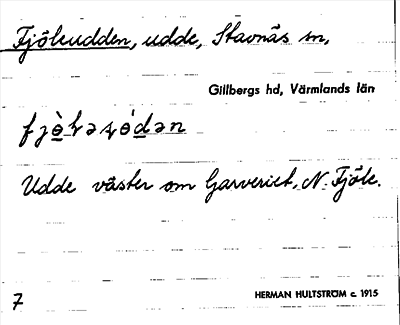 Fjöleudden, udde, Stavnäs sn,
Gillbergs hd, Värmlands län
Udde väster om Garveriet, N. Fjöle.
7 HERMAN HULTSTRÖM c. 1915